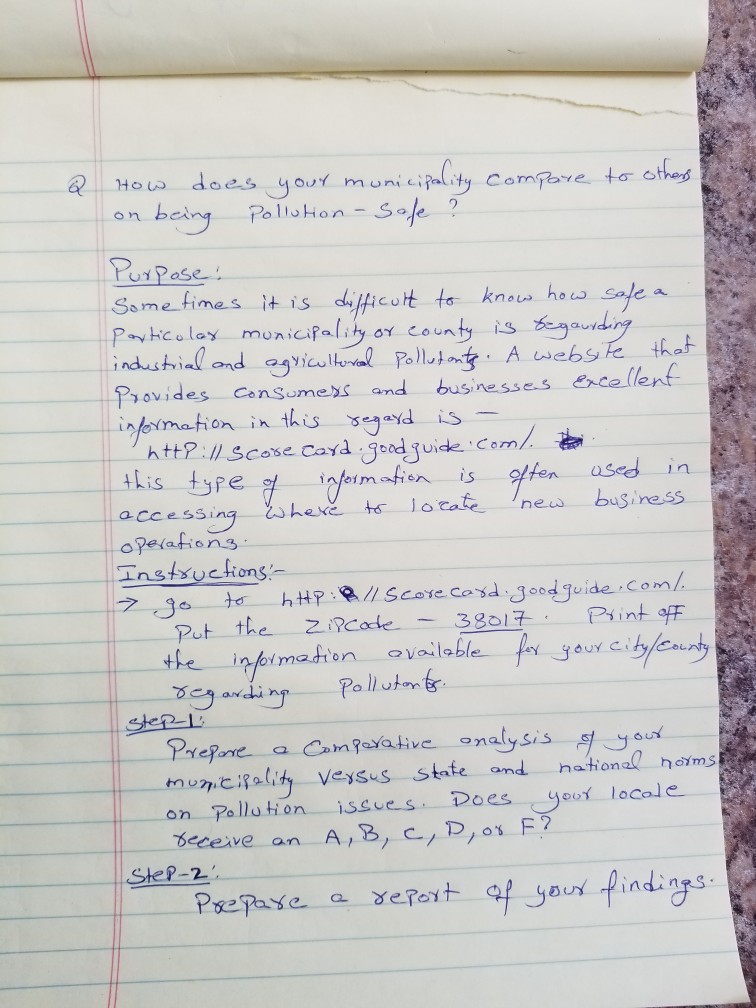 Q How does your municipality compare to others
on being Pollution - Safe ?
Purpose:
Sometimes it is difficult to know how safe a
Particular municipality or county is regaurding
industrial and agricultural Pollutants. A website that
Provides consumers and businesses excellent
information in this regard is -
http://scorecard.goodguide.com/.
this type of information is often used in
accessing where to locate new business
operations.
Instructions:-
→ go to http://scorecard.goodguide.com/.
Put the Zipcode - 38017. Print off
the information available for your city/county
regarding Pollutants.
Step-1:
Prepare a Comparative analysis of your
municipality versus state and national norms
on Pollution issues. Does your locale
receive an A, B, C, D, or F?
Step-2:
Prepare a report of your findings.